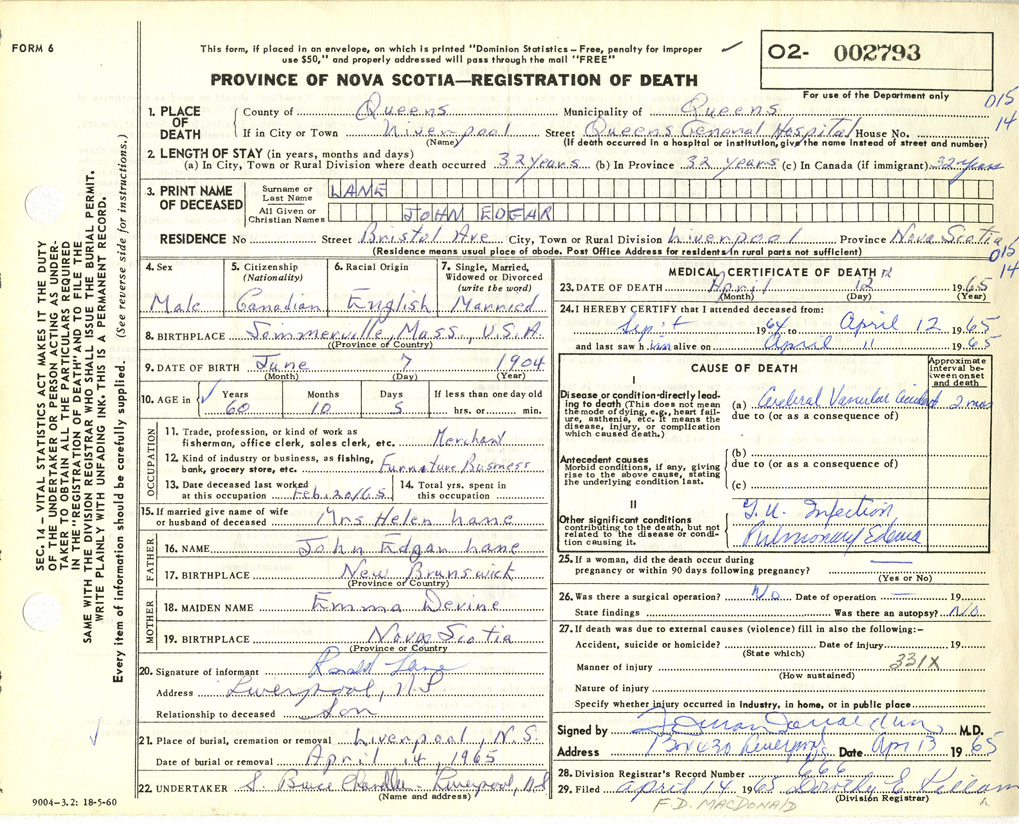 FORM 6
This form, if placed in an envelope, on which is printed "Dominion Statistics—Free, penalty for improper
use $50," and properly addressed will pass through the mail "FREE"
PROVINCE OF NOVA SCOTIA—REGISTRATION OF DEATH
O2- 002793
For use of the Department only
015
14
SEC. 14 – VITAL STATISTICS ACT MAKES IT THE DUTY
OF THE UNDERTAKER OR PERSON ACTING AS UNDER-
TAKER TO OBTAIN ALL THE PARTICULARS REQUIRED
IN THE "REGISTRATION OF DEATH" AND TO FILE THE
SAME WITH THE DIVISION REGISTRAR WHO SHALL ISSUE THE BURIAL PERMIT.
WRITE PLAINLY WITH UNFADING INK. THIS IS A PERMANENT RECORD.
Every item of information should be carefully supplied. (See reverse side for instructions.)
1. PLACE OF DEATH
County of Queens Municipality of Queens
If in City or Town Liverpool Street Queens General Hospital House No.
(Name) (If death occurred in a hospital or institution, give the name instead of street and number)
2. LENGTH OF STAY (in years, months and days)
(a) In City, Town or Rural Division where death occurred 32 years (b) In Province 32 years (c) In Canada (if immigrant) 32 years
3. PRINT NAME OF DECEASED
Surname or Last Name LANE
All Given or Christian Names JOHN EDGAR
RESIDENCE No Street Bristol Ave City, Town or Rural Division Liverpool Province Nova Scotia
(Residence means usual place of abode. Post Office Address for residents in rural parts not sufficient)
015
14
4. Sex 5. Citizenship (Nationality) 6. Racial Origin 7. Single, Married, Widowed or Divorced (write the word)
Male Canadian English Married
8. BIRTHPLACE Sommerville, Mass, U.S.A.
(Province or Country)
9. DATE OF BIRTH June 7 1904
(Month) (Day) (Year)
10. AGE in Years Months Days If less than one day old
60 10 5 hrs. or min.
OCCUPATION
11. Trade, profession, or kind of work as
fisherman, office clerk, sales clerk, etc. Merchant
12. Kind of industry or business, as fishing,
bank, grocery store, etc. Furnature Business
13. Date deceased last worked at this occupation Feb. 20/65 14. Total yrs. spent in this occupation
15. If married give name of wife
or husband of deceased Mrs Helen Lane
FATHER
16. NAME John Edgar Lane
17. BIRTHPLACE New Brunswick
(Province or Country)
MOTHER
18. MAIDEN NAME Emma Devine
19. BIRTHPLACE Nova Scotia
(Province or Country)
20. Signature of informant Ronald Lane
Address Liverpool, N.S
Relationship to deceased Son
21. Place of burial, cremation or removal Liverpool, N.S.
Date of burial or removal April 14, 1965
22. UNDERTAKER S. Bruce Chandler - Liverpool, N.S
(Name and address)
9004-3.2: 18-5-60
MEDICAL CERTIFICATE OF DEATH
23. DATE OF DEATH April 12 1965
(Month) (Day) (Year)
24. I HEREBY CERTIFY that I attended deceased from:
Sep't 1964 to April 12 1965
and last saw him alive on April 11 1965
CAUSE OF DEATH
Approximate interval between onset and death
I
Disease or condition directly lead-
ing to death (This does not mean
the mode of dying, e.g., heart fail-
ure, asthenia, etc. It means the
disease, injury, or complication
which caused death.)
(a) Cerebral Vascular Accident 2 mos
due to (or as a consequence of)
Antecedent causes
Morbid conditions, if any, giving
rise to the above cause, stating
the underlying condition last.
(b)
due to (or as a consequence of)
(c)
II
Other significant conditions
contributing to the death, but not
related to the disease or condi-
tion causing it.
G.U. Infection
Pulmonary Edema
25. If a woman, did the death occur during
pregnancy or within 90 days following pregnancy? —
(Yes or No)
26. Was there a surgical operation? No Date of operation — 19
State findings Was there an autopsy? No
27. If death was due to external causes (violence) fill in also the following:—
Accident, suicide or homicide? Date of injury 19
(State which)
Manner of injury 331X
(How sustained)
Nature of injury
Specify whether injury occurred in industry, in home, or in public place
Signed by M.D.
Address Box 630 Liverpool Date Apr 13 1965
28. Division Registrar's Record Number 666
29. Filed April 14 1965 Dorothy E Killam
(Division Registrar)
F.D. MACDONALD